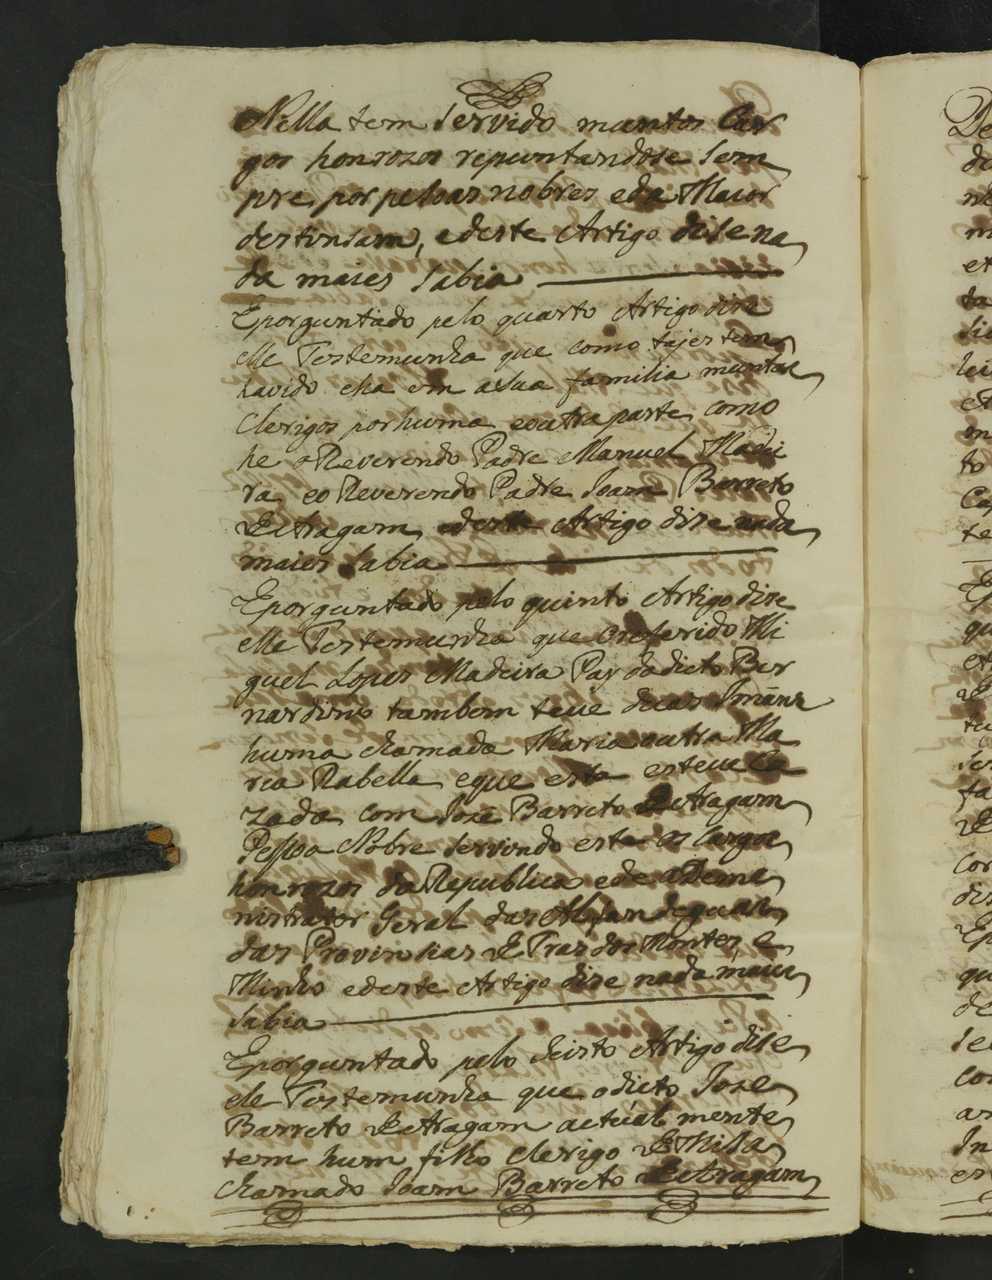 Nella tem servido muntos Car
gos honrozos repuntandose Sem
pre por pesoas nobres eda Maior
destinsam, edeste Artigo dise na
da maies Sabia
Eporguntado pelo quarto Artigo dise
elle Testemunha que como tajes tem
havido eha em asua familia muntas
Clerigos por huma eoutra parte como
he o Reverendo Padre Manuel Madei
ra eo Reverendo Padre Joam Barreto
deAragam edeste Artigo dise nada
maies Sabia
Eporguntado pelo quinto Artigo dise
elle Testemunha que oreferido Mi
guel Lopes Madeira Pay do dicto Ber
nardino tambem teve duas Imãns
huma chamada Maria outra Ma
ria Rabella eque esta esteve Ca
zada com Joze Barreto deAragam
Pessoa Nobre Servindo este os Cargos
honrozos da Republica ede aDeme
nistrator Geral das Alfandeguas
das Provinsias deTras dos Montes e
Minho edeste Artigo dise nada maies
Sabia
Eporguntado pelo Seisto Artigo dise
ele Testemunha que odicto Joze
Barreto deAragam actual mente
tem hum filho Clerigo deMisa
chamado Joam Barreto deAragam